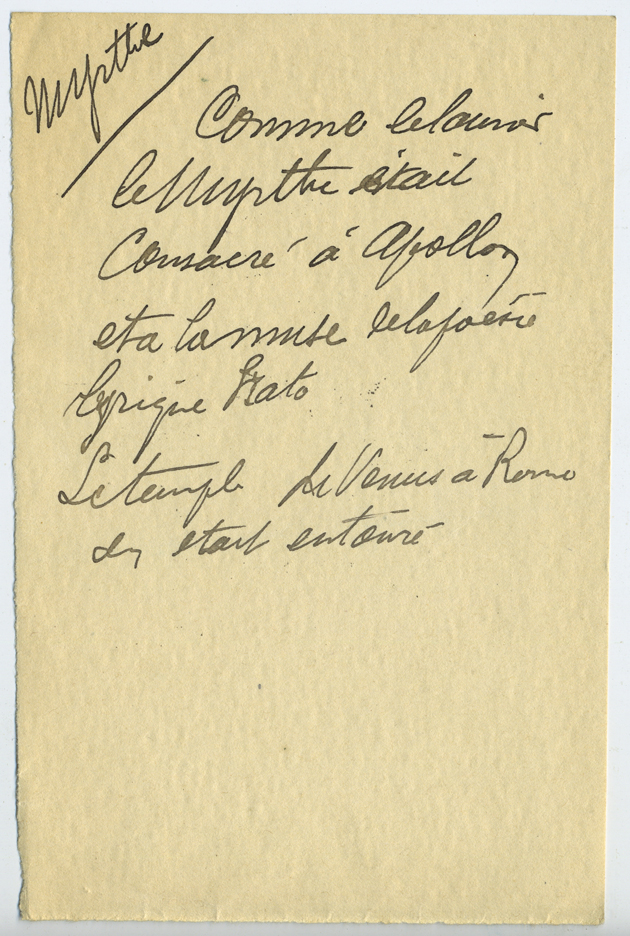 Myrthe
Comme le laurier
le Myrthe était
Consacré à Apollon
et a la muse de la poésie
lyrique Erato
Le temple de Venus à Rome
en etait entouré